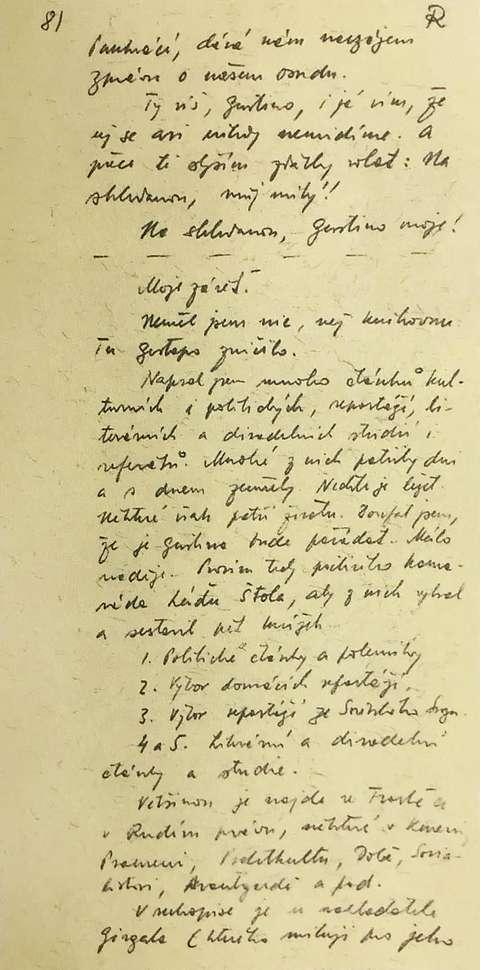 81 R
Pankráci, dává nám navzájem
zprávu o našem osudu.
Ty víš, Gustino, i já vím, že
už se asi nikdy neuvidíme. A
přece tě slyším zdálky volat: Na
shledanou, můj milý!
Na shledanou, Gustino moje!
Moje závěť.
Neměl jsem nic, než knihovnu.
Tu gestapo zničilo.
Napsal jsem mnoho článků kul-
turních i politických, reportáží, li-
terárních a divadelních studií i
referátů. Mnohé z nich patřily dni
a s dnem zemřely. Nechte je ležet.
Některé však patří životu. Doufal jsem,
že je Gustina bude pořádat. Málo
naděje. Prosím tedy poctivého kama-
ráda Láďu Štola, aby z nich vybral
a sestavil pět knížek
1. Politické články a polemiky
2. Výbor domácích reportáží.
3. Výbor reportáží ze Sovětského Svazu.
4 a 5. Literární a divadelní
články a studie.
Většinou je najde v Tvorbě a
v Rudém právu, některé v Kmeni,
Prameni, Proletkultu, Době, Socia-
listovi, Avantgardě a pod.
V rukopise je u nakladatele
Girgala (kterého miluji pro jeho